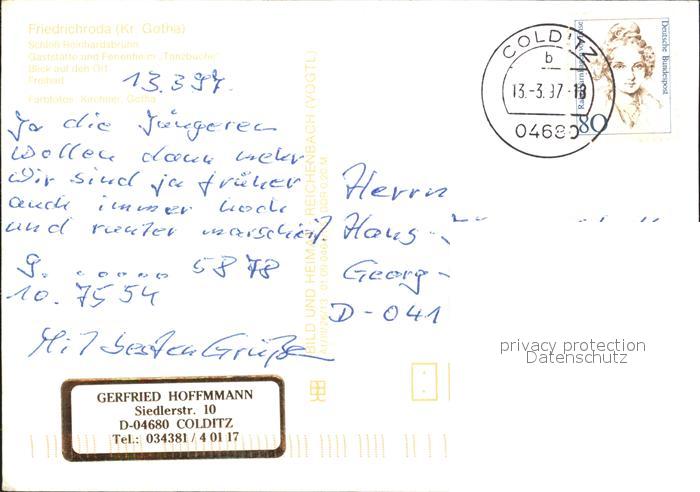 Friedrichroda (Kr. Gotha)
Schloß Reinhardsbrunn
Gaststätte und Ferienheim „Tanzbuche“
Blick auf den Ort
Freibad
Farbfotos: Kirchner, Gotha
13.3.97.
Ja die Jüngeren
wollen dann mehr
Wir sind ja früher
auch immer hoch
und runter marschiert.
G. ..... 5878
10. 7554
Mit besten Grüßen
GERFRIED HOFFMMANN
Siedlerstr. 10
D-04680 COLDITZ
Tel.: 034381 / 4 01 17
BILD UND HEIMAT REICHENBACH (VOGTL)
COLDITZ
b
13.-3.97-18
04680
Deutsche Bundespost
80
Herrn
Hans-
Georg-
D-041
privacy protection
Datenschutz